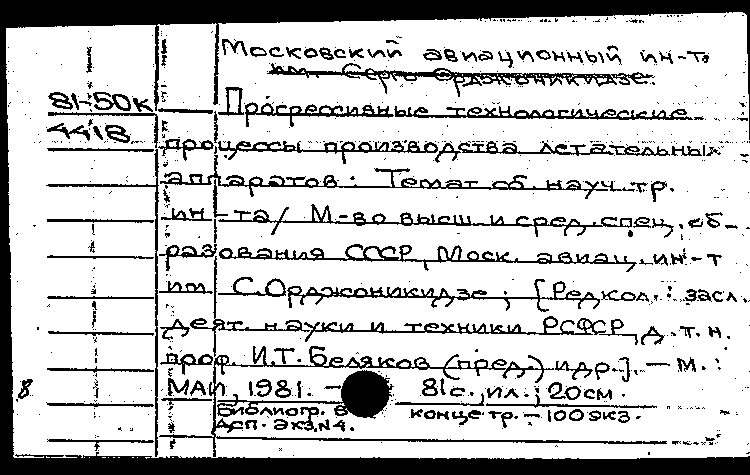 Московский авиационный ин-т
им. Серго Орджоникидзе.
81-50к Прогрессивные технологические
4418 процессы производства летательных
аппаратов: Темат сб. науч. тр.
ин-та/ М-во высш и сред. спец. об-
разования СССР, Моск. авиац. ин-т
им С. Орджоникидзе; [Редкол.: засл.
деят. науки и техники РСФСР, д.т.н.
проф. И.Т. Беляков (пред.) и др.]. — М.:
8 МАИ, 1981. — 81с., ил.; 20см.
Библиогр. в конце тр. — 100 экз.
Асп. Экз. N4.